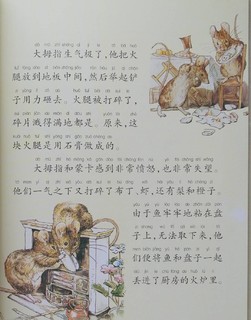 大拇指生气极了，他把火
腿放到地板中间，然后举起铲
子用力砸去。火腿被打碎了，
碎片溅得满地都是。原来，这
块火腿是用石膏做成的。
大拇指和蒙卡感到非常愤怒，也非常失望。
他们一气之下又打碎了布丁、虾，还有梨和橙子。
由于鱼牢牢地粘在盘
子上，无法取下来，他
们便将鱼和盘子一起
丢进了厨房的火炉里。